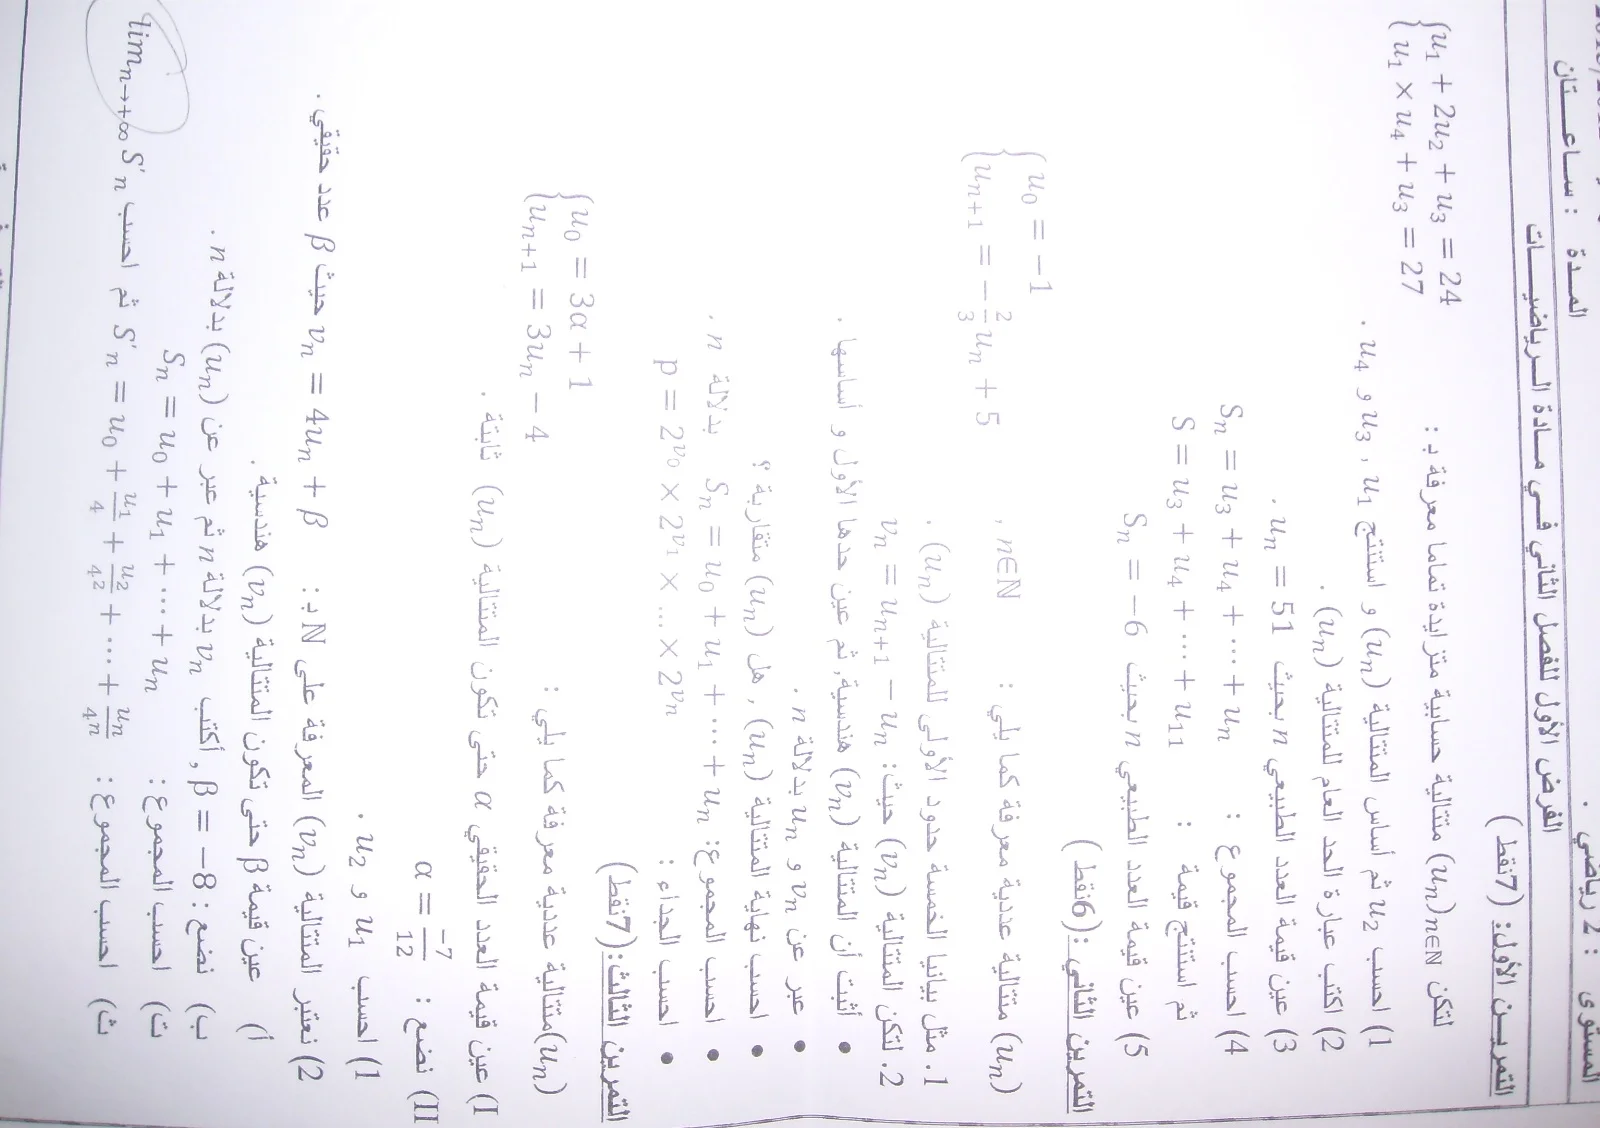 المستوى : 2 رياضي .
المــدة : ســاعــتان
الفرض الأول للفصل الثاني في مــادة الـرياضيــات
التمريـن الأول: (7نقط)
لتكن (uₙ)n∈ℕ متتالية حسابية متزايدة تماما معرفة بـ : { u₁ + 2u₂ + u₃ = 24
u₁ × u₄ + u₃ = 27
1) احسب u₂ ثم أساس المتتالية (uₙ) و استنتج u₁ , u₃ و u₄ .
2) اكتب عبارة الحد العام للمتتالية (uₙ) .
3) عين قيمة العدد الطبيعي n بحيث uₙ = 51 .
4) احسب المجموع : Sₙ = u₃ + u₄ + ⋯ + uₙ
ثم استنتج قيمة : S = u₃ + u₄ + ⋯ + u₁₁
5) عين قيمة العدد الطبيعي n بحيث Sₙ = −6
التمرين الثاني :(6نقط)
(uₙ) متتالية عددية معرفة كما يلي : , n∈ℕ { u₀ = −1
uₙ₊₁ = −2/3 uₙ + 5
1. مثل بيانيا الخمسة حدود الأولى للمتتالية (uₙ) .
2. لتكن المتتالية (vₙ) حيث: vₙ = uₙ₊₁ − uₙ
• أثبت أن المتتالية (vₙ) هندسية, ثم عين حدها الأول و أساسها .
• عبر عن vₙ و uₙ بدلالة n .
• احسب نهاية المتتالية (uₙ) , هل (uₙ) متقاربة ؟
• احسب المجموع: Sₙ = u₀ + u₁ + ⋯ + uₙ بدلالة n .
• احسب الجداء : p = 2^v₀ × 2^v₁ × … × 2^vₙ
التمرين الثالث:(7نقط)
(uₙ)متتالية عددية معرفة كما يلي : { u₀ = 3α + 1
uₙ₊₁ = 3uₙ − 4
I) عين قيمة العدد الحقيقي α حتى تكون المتتالية (uₙ) ثابتة .
II) نضع : α = −7/12
1) احسب u₁ و u₂ .
2) نعتبر المتتالية (vₙ) المعرفة على ℕ بـ : vₙ = 4uₙ + β حيث β عدد حقيقي .
أ) عين قيمة β حتى تكون المتتالية (vₙ) هندسية .
ب) نضع : β = −8 , أكتب vₙ بدلالة n ثم عبر عن (uₙ) بدلالة n .
ت) احسب المجموع : Sₙ = u₀ + u₁ + ⋯ + uₙ
ث) احسب المجموع : S′ₙ = u₀ + u₁/4 + u₂/4² + ⋯ + uₙ/4ⁿ ثم احسب limₙ→+∞ S′ₙ